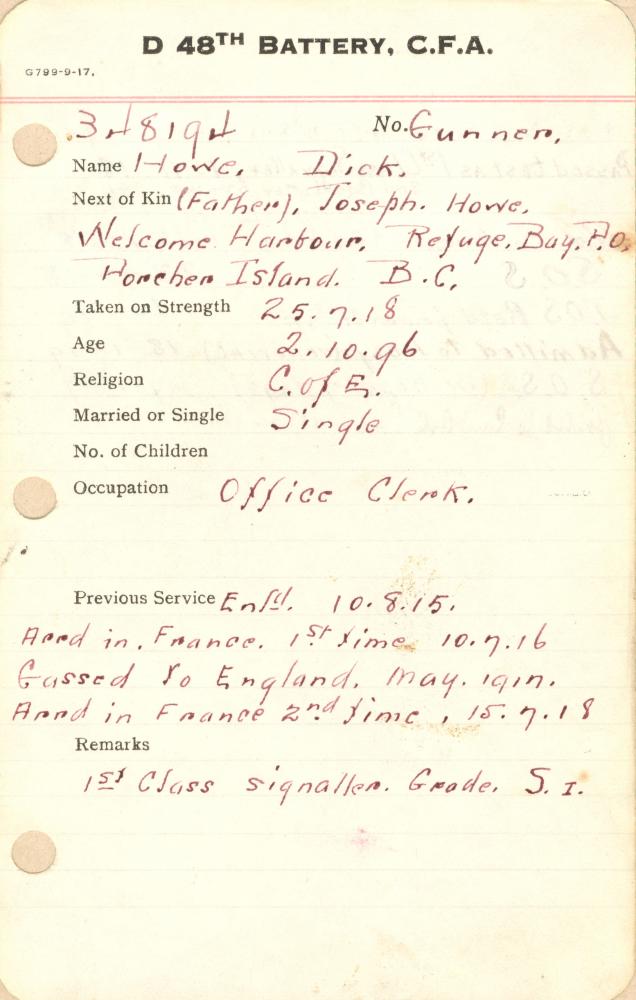 D 48TH BATTERY, C.F.A.
G799-9-17.
348194 No. Gunner,
Name Howe, Dick,
Next of Kin (Father), Joseph. Howe,
Welcome Harbour, Refuge, Bay, P.O,
Porcher Island. B.C,
Taken on Strength 25.7.18
Age 2.10.96
Religion C. of E.
Married or Single Single
No. of Children
Occupation Office Clerk.
Previous Service Enl'd. 10.8.15.
Arrd in, France. 1st time 10.7.16
Gassed to England, May. 1917.
Arrd in France 2nd time, 15.7.18
Remarks
1st Class signaller. Grade. S. I.